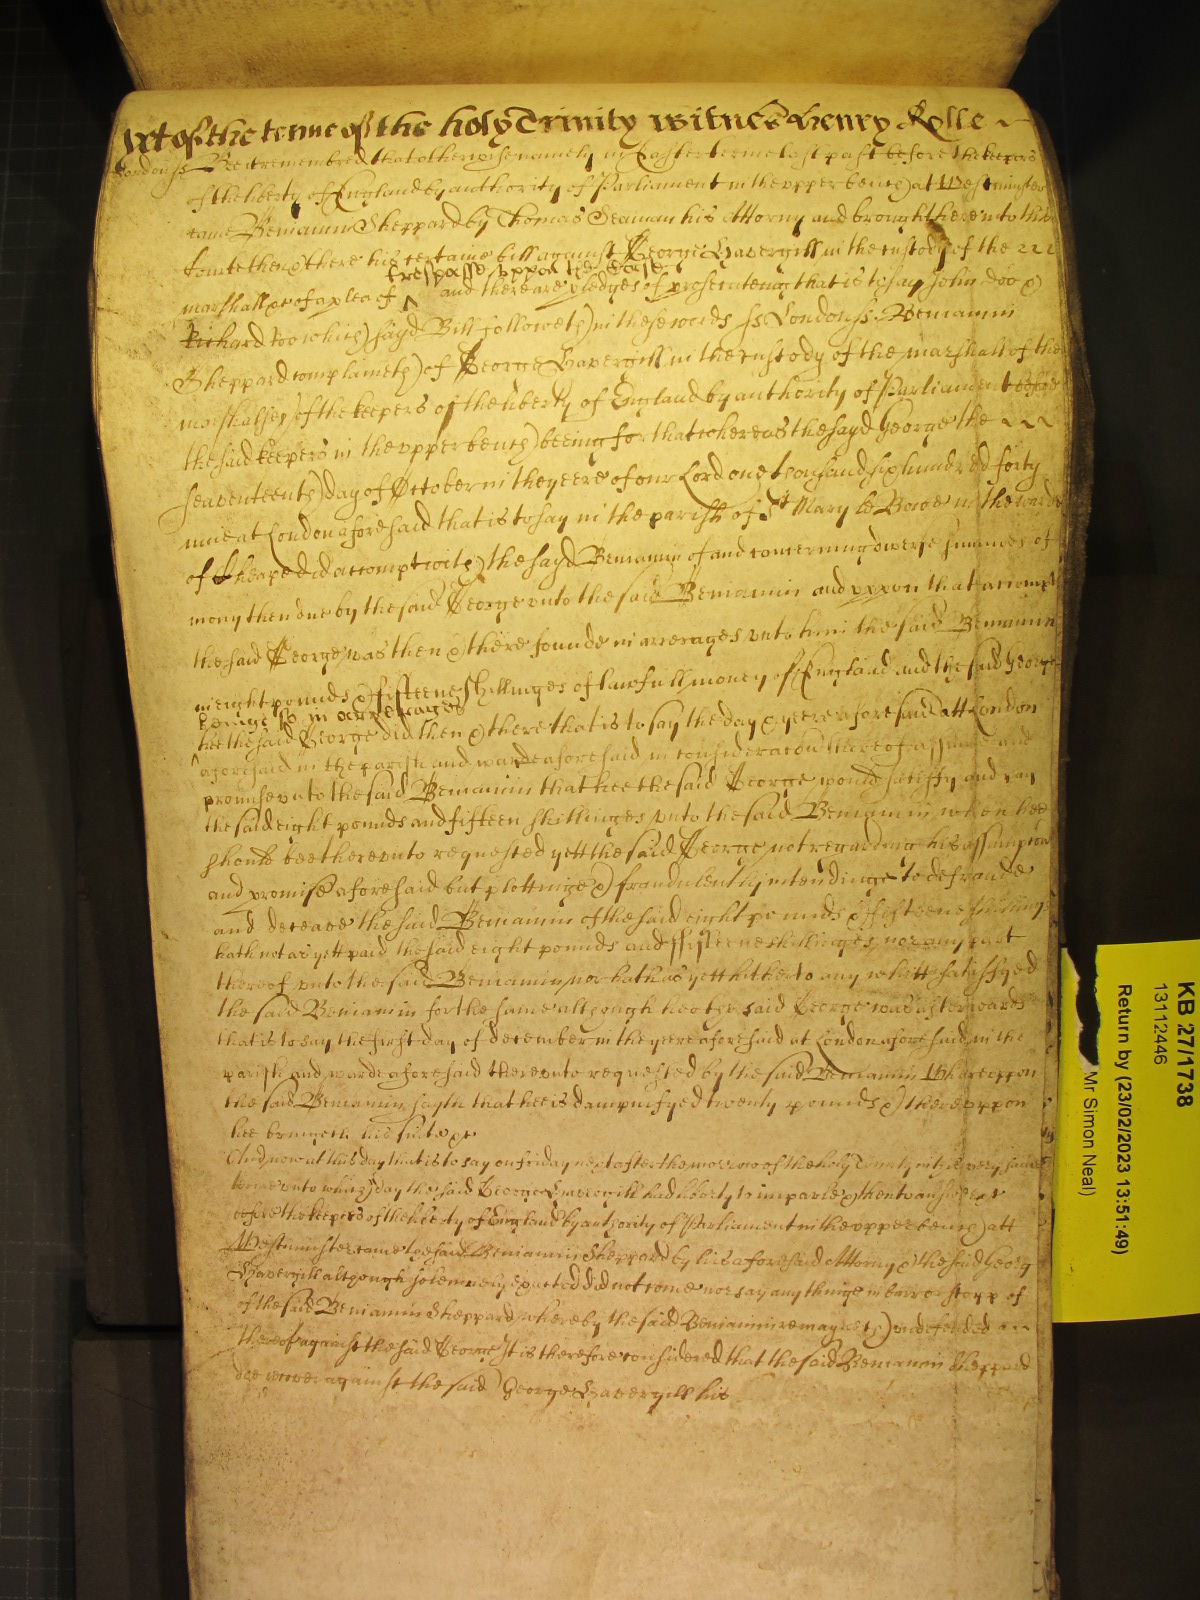 yet of the terme of the holy Trinity witnes Henry Rolle
London ss Bee it remembred that otherwise namely in Easter terme last past before the keepers
of the liberty of England by authority of Parliament in the upper bench at Westminster
came Beniamin Sheppard by Thomas Seaman his Attorny and brought here into the
Courte then & there his certaine bill against George Havergill in the custody of the
trespasse uppon the case
marshall &c of a plea of ^ and there are pledges of prosecuteing that is to say John Doo &
Richard Roo which sayd Bill followeth in these words ss London ss Beniamin
Sheppard complaineth of George Havergill in the custody of the marshall of the
marshalsey of the keepers of the liberty of England by authority of Parliament before
the said keepers in the upper bench beeing for that whereas the sayd George the
seaventeenth day of October in the yeere of our Lord one thousand six hundred forty
nine at London aforesaid that is to say in the parish of St Mary le Bowe in the warde
of Cheape did accompt with the sayd Beniamin of and concerning diverse summes of
mony then due by the said George unto the said Beniamin and uppon that accompt
the said George was then & there founde in arrerages unto him the said Beniamin
in eight pounds & fifteene shillinges of lawfull money of England and the said George
beinge so in arrerages
hee the said George did then & there that is to say the day & yeere aforesaid att London
^ aforesaid in the parish and warde aforesaid in consideracon thereof assume and
promise unto the said Beniamin that hee the said George would satisfy and pay
the said eight pounds and fifteen shillinges unto the said Beniamin when hee
should bee thereunto requested yett the said George not regarding his assumption
and promise aforesaid but plottinge & fraudulently intendinge to defraude
and deceave the said Beniamin of the said eight pounds & fifteene shillings
hath not as yett paid the said eight pounds and fifteene shillinges nor any part
thereof unto the said Beniamin nor hath as yett hitherto any whitt satisfyed
the said Beniamin for the same although hee the said George was afterwards
that is to say the first day of december in the yeere aforesaid at London aforesaid in the
parish and warde aforesaid thereunto requested by the said Beniamin Whereuppon
the said Beniamin sayth that hee is dampnifyed twenty pounds & thereuppon
hee bringeth his suite &c
And now at this day that is to say on friday next after the morrow of the holy Trinity in this very same
terme unto which day the said George Havergill had liberty to imparle & then to answere &c
before the keepers of the liberty of England by authority of Parliament in the upper bench att
Westminster came the said Beniamin Sheppard by his aforesaid Attorny & the said George
Havergill although solemnely exacted did not come nor say any thinge in barr or stopp of
of the said Beniamin Sheppard whereby the said Beniamin remayneth undefended
thereof against the said George It is therefore considered that the said Beniamin Sheppard
doe recover against the said George Havergill his
KB 27/1738
13112446
Return by (23/02/2023 13:51:49)
Mr Simon Neal)